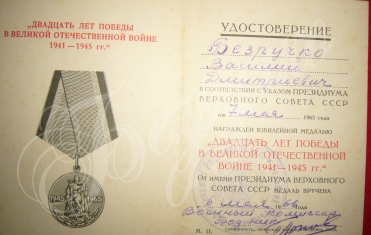 „ДВАДЦАТЬ ЛЕТ ПОБЕДЫ
В ВЕЛИКОЙ ОТЕЧЕСТВЕННОЙ ВОЙНЕ
1941—1945 гг.“
1945 1965
УДОСТОВЕРЕНИЕ
Безручко
Василий
Дмитриевич
В СООТВЕТСТВИИ С УКАЗОМ ПРЕЗИДИУМА
ВЕРХОВНОГО СОВЕТА СССР
от 7 мая 1965 года
НАГРАЖДЕН ЮБИЛЕЙНОЙ МЕДАЛЬЮ
„ДВАДЦАТЬ ЛЕТ ПОБЕДЫ
В ВЕЛИКОЙ ОТЕЧЕСТВЕННОЙ
ВОЙНЕ 1941—1945 гг.“
От имени ПРЕЗИДИУМА ВЕРХОВНОГО
СОВЕТА СССР МЕДАЛЬ ВРУЧЕНА
6 мая 1966
Военный комиссар
М. П.